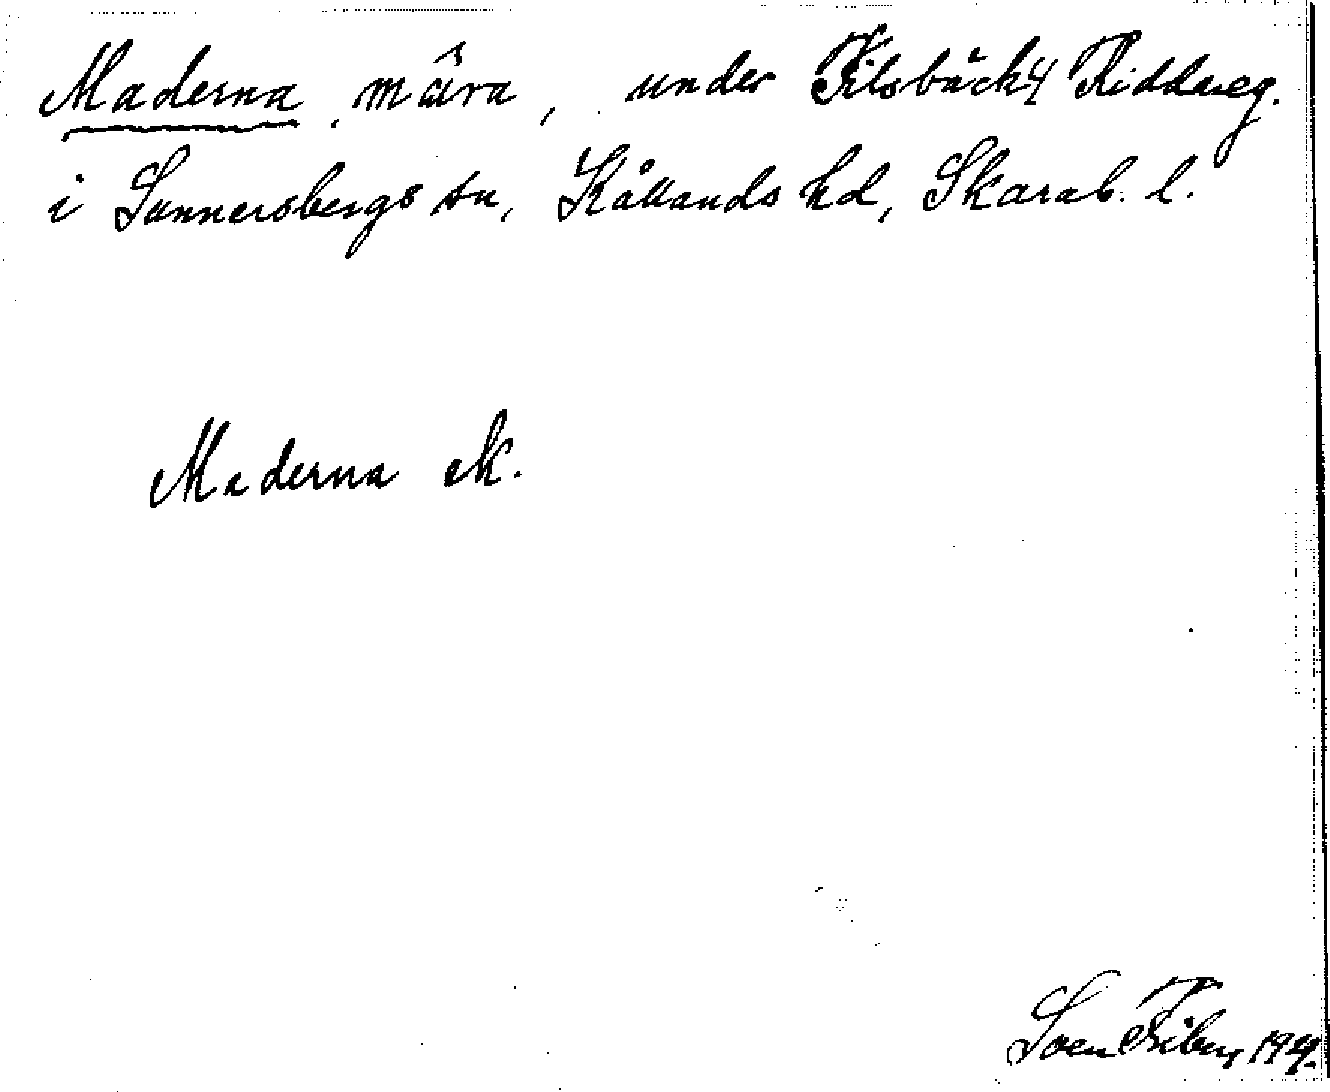 Maderna, mâra, under Filsbäck 4 Riddareg.
i Sunnersbergs sn, Kållands hd, Skarab. l.
Maderna ek.
Sven Fiberg 1929.